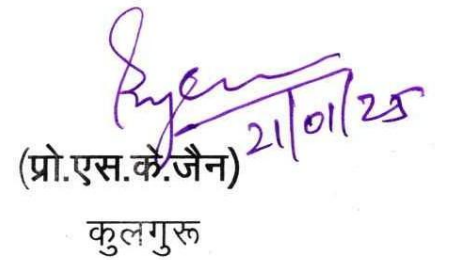 21/01/25
(प्रो.एस.के.जैन)
कुलगुरू